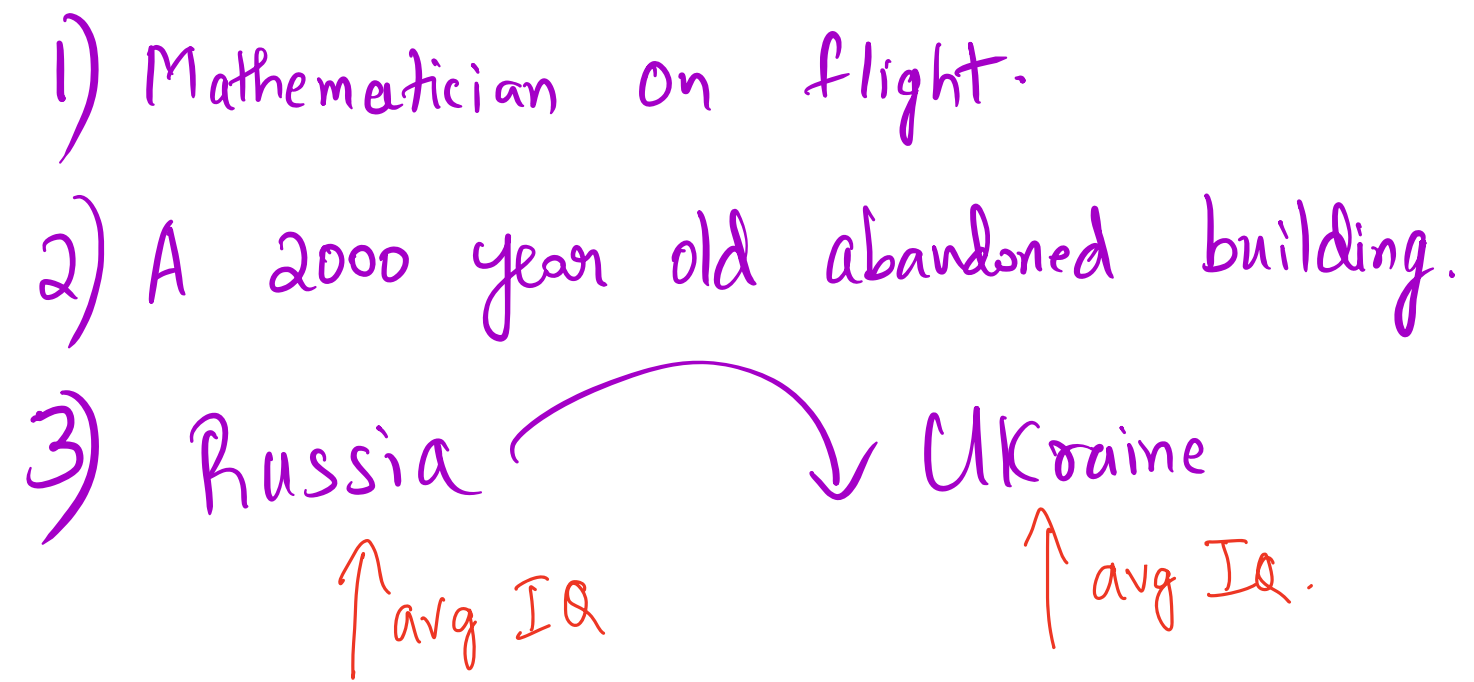 1) Mathematician on flight.
2) A 2000 year old abandoned building.
3) Russia Ukraine
avg IQ avg IQ.